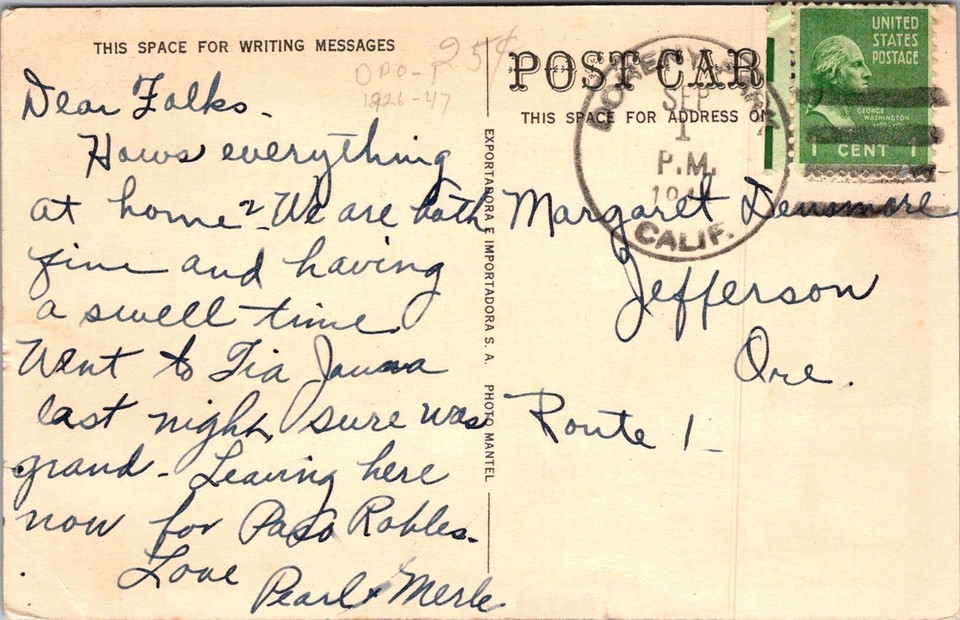 THIS SPACE FOR WRITING MESSAGES
25¢
DPO-1
1926-47
Dear Folks.
Hows everything
at home? We are both
fine and having
a swell time.
Went to Tia Jauna
last night, sure was
grand - Leaving here
now for Paso Robles.
Love
Pearl & Merle
EXPORTADORA E IMPORTADORA S. A. PHOTO MANTEL
POST CAR
THIS SPACE FOR ADDRESS ON
SEP
1
P.M.
CALIF.
UNITED
STATES
POSTAGE
GEORGE
WASHINGTON
1 CENT 1
Margaret Densmore
Jefferson
Ore.
Route 1